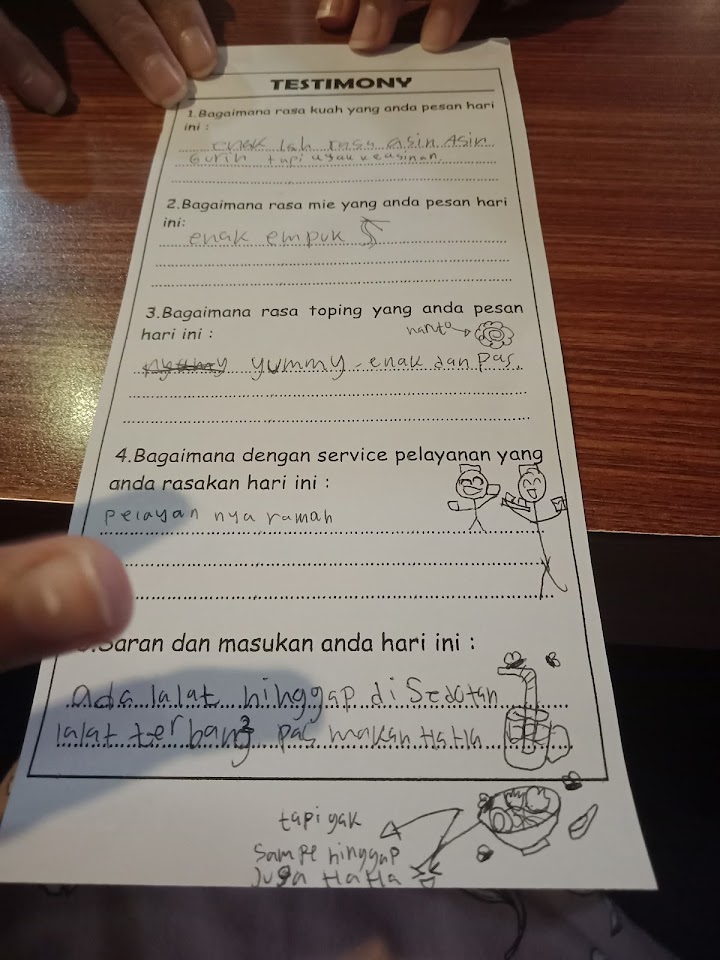 TESTIMONY
1.Bagaimana rasa kuah yang anda pesan hari
ini :
enak lah rasa asin Asin
Gurih tapi agak keasinan.
2.Bagaimana rasa mie yang anda pesan hari
ini:
enak empuk
3.Bagaimana rasa toping yang anda pesan
hari ini :
naruto
yummy - enak dan pas.
4.Bagaimana dengan service pelayanan yang
anda rasakan hari ini :
pelayan nya ramah
Saran dan masukan anda hari ini :
Ada lalat hinggap di Sedotan
lalat terbang2 pas makan HaHa
tapi gak
Sampe hinggap
Juga HaHa